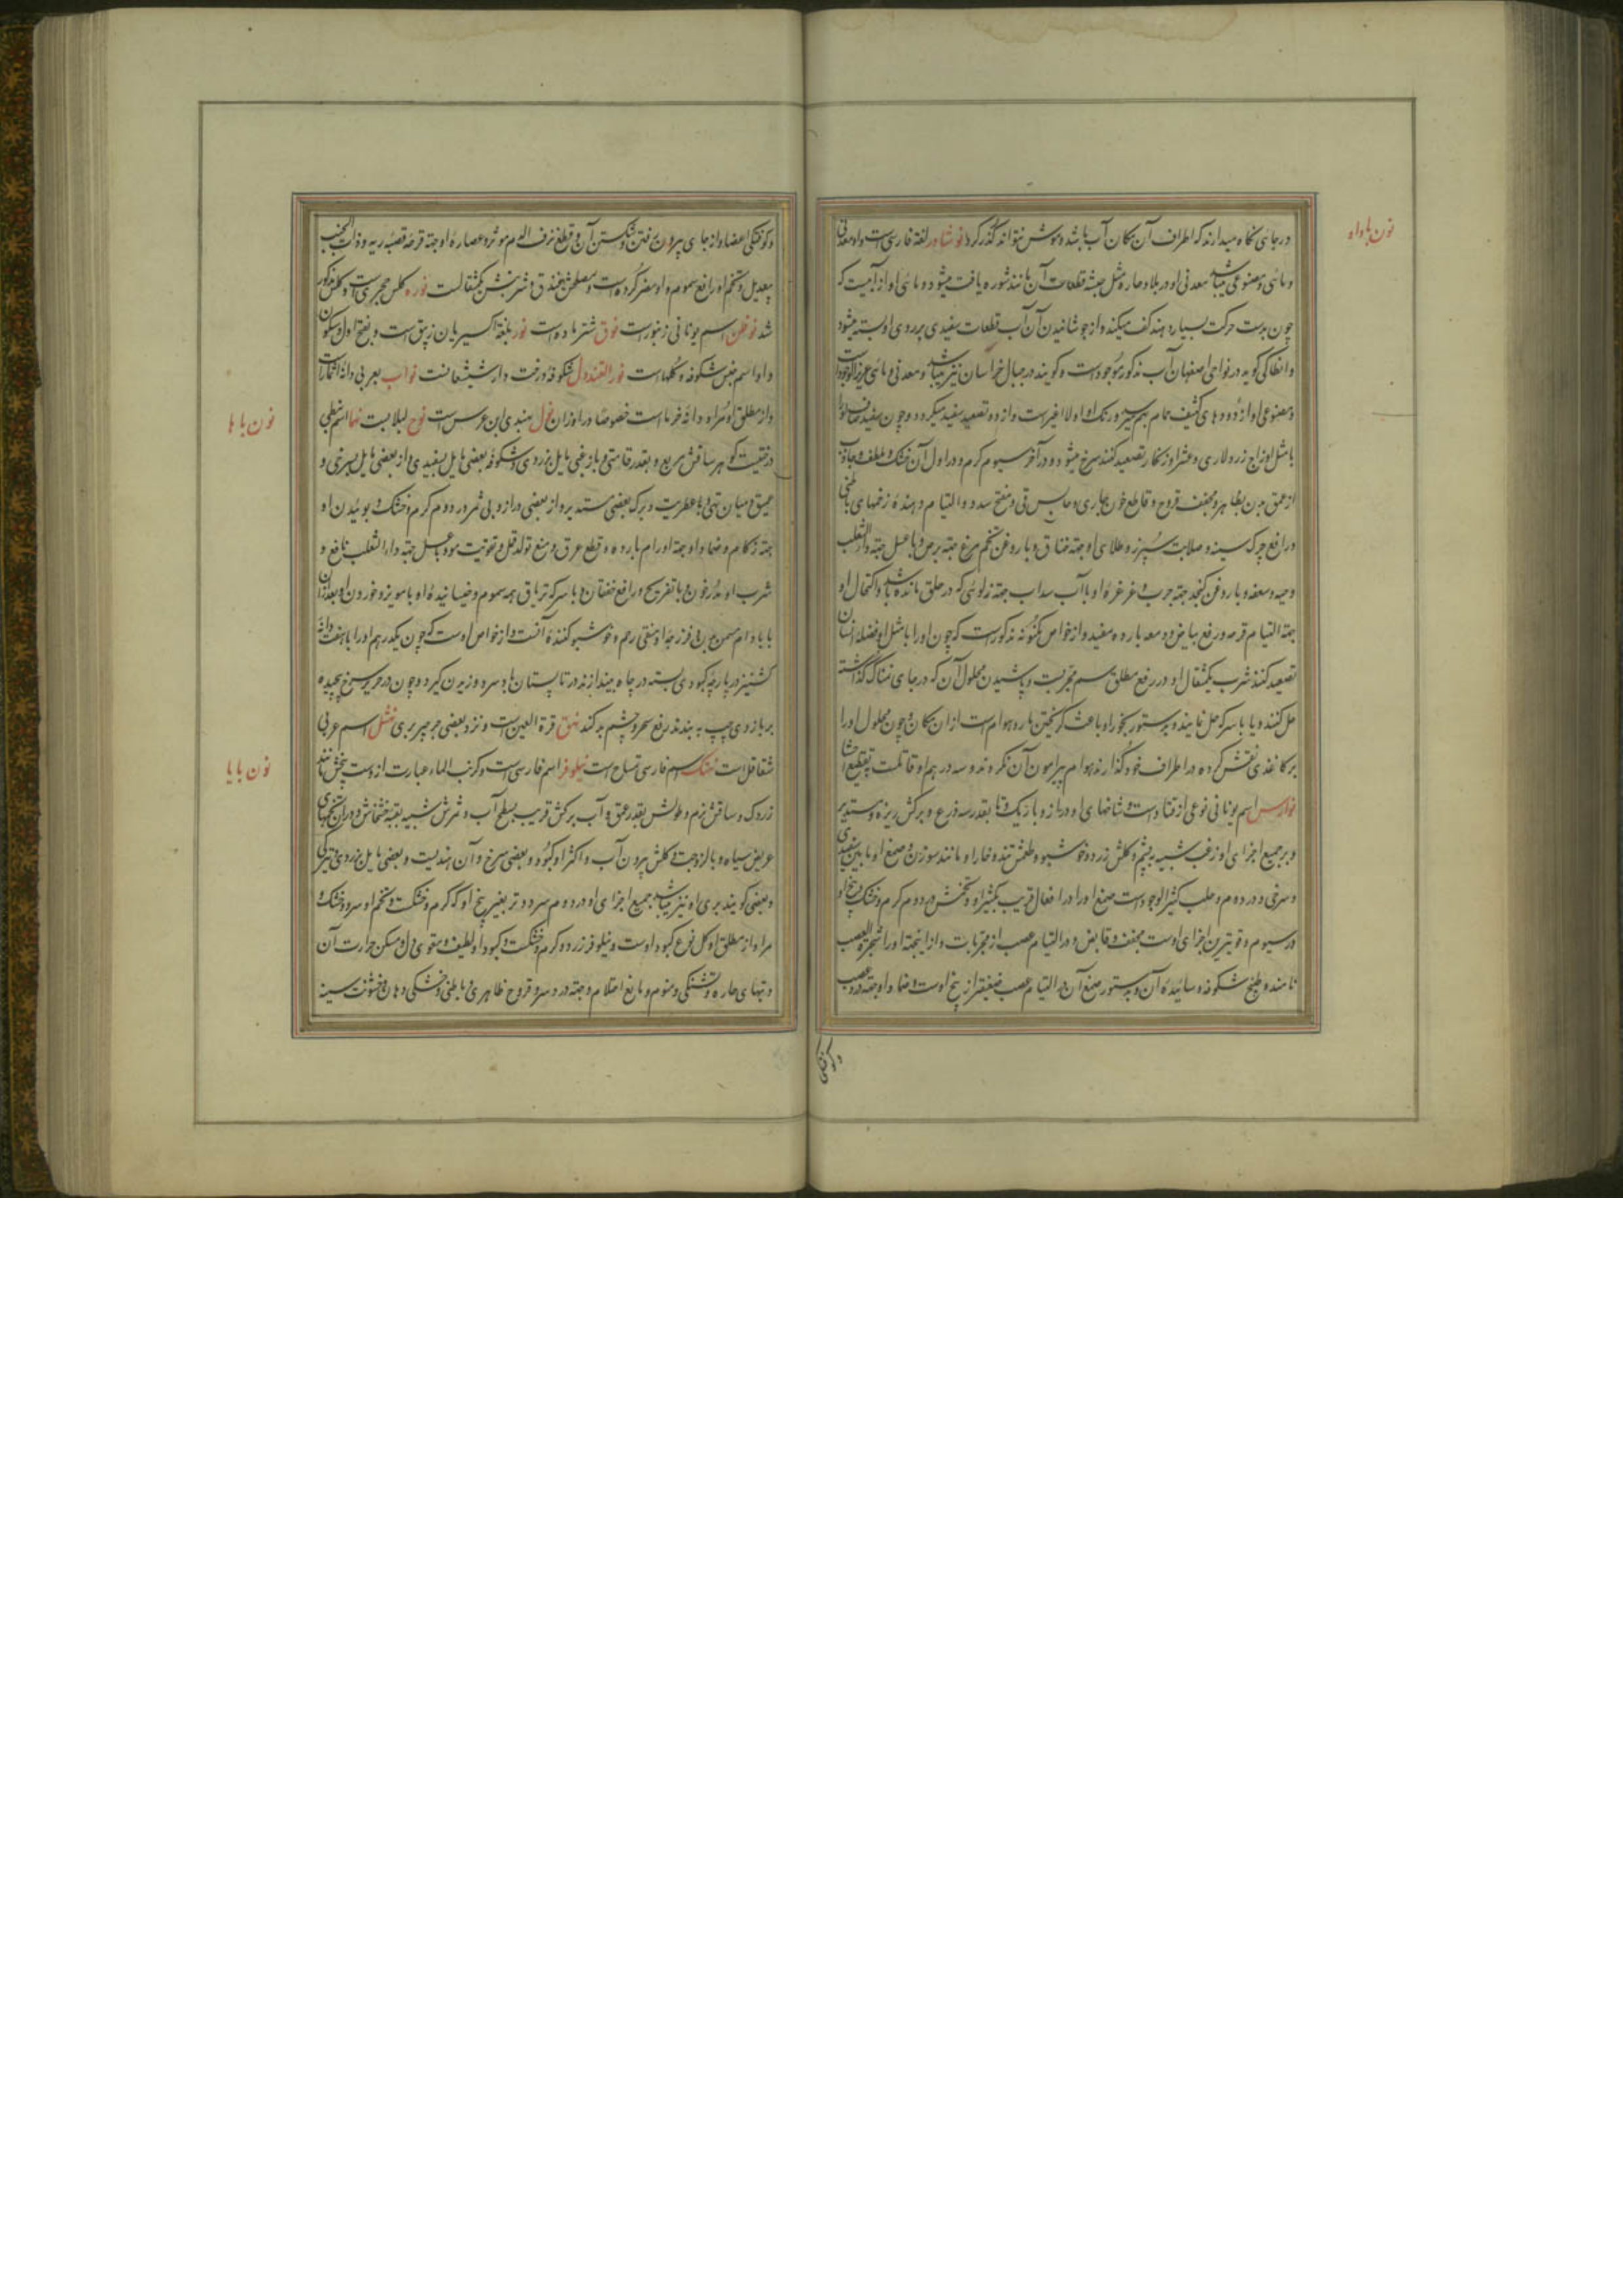 نون با واو
در جائی نگاه میدارند که اطراف آن مکان آب باشد و موش نتواند گذر کرد نوشادر لغة فارسی است و او معدنی
و مائی و مصنوعی میباشد معدنی او در بلاد حاره مثل حبشه قطعات آن مانند شوره یافت میشود و مائی او از آبیست که
چون بدست حرکت بسیار دهند کف میکند و از جوشانیدن آن آب قطعات سفیدی بر روی او بسته میشود
و انطاکی گوید در نواحی اصفهان آب مذکور موجود است و گویند در جبال خراسان نیز میباشد و معدنی و مائی عزیزالوجود است
و مصنوعی او از دودهای کثیف حمام بهم میرسد و رنگ او اولا اغبر است و از دو تصعید سفید میگردد و چون سفید صاف او را
با مثل او زاج زرد لاری و عشر او زنگار تصعید کنند سرخ میشود و در آخر سیوم گرم و در اول آن خشک و ملطف و جاذب
از عمق بدن بظاهر و مجفف قروح و قاطع خون جاری و حابس قی و مفتح سدد و التیام دهنده زخمهای باطنی
و رافع چرک سینه و صلابت سپرز و طلای او جهة خناق و با روغن تخم مرغ جهة برص و با عسل جهة داءالثعلب
و حیه و سعفه و با روغن کنجد جهة جرب و غرغره او با آب سداب جهة زلوئی که در حلق مانده باشد و اکتحال او
جهة التیام قرحه و رفع بیاض و دمعه بارده مفید و از خواص مکنونه مذکور است که چون او را با مثل او فضله انسان
تصعید کنند شرب یکمثقال او در رفع مطلق سم مجربست و پاشیدن محلول آن که در جای نمناک گذاشته
حل کنند و یا با سرکه حل نمایند و بدستور بخور او باعث گریختن مار و هوام است از آن مکان و چون محلول او را
بر کاغذی نقش کرده در اطراف خود گذارند هوام پیرامون آن نگردند و سه درهم او قاتلست بتقطیع احشا
نوارس اسم یونانی نوعی از قتاد است و شاخهای او دراز و باریک و تا بقدر سه ذرع و برگش ریزه و مستدیر
و بر جمیع اجزای او زغب شبیه بپشم و گلش زرد و خوشبو و طعمش تند و خار او مانند سوزن و صمغ او مابین سفیدی
و سرخی و در روم و حلب کثیرالوجود است صمغ او را در افعال قریب بکثیرا و تخمش در دوم گرم و خشک و بیخ او
در سیوم و قویترین اجزای اوست مجفف و قابض و در التیام عصب از مجربات و از اینجهة او را شجرة العصب
نامند و طبخ شکوفه و سائیده آن و بدستور صمغ آن در التیام عصب ضعیفتر از بیخ اوست و ضماد او جهة درد عصب
و کوفتگی
و کوفتگی اعضا و از جای بیرون رفتن و شکستن آن و قطع نزف الدم موثر و عصاره او جهة قرحه قصبه ریه و ذات الجنب
بیعدیل و تخم او رافع سموم و او مضر گرده است و مصلحش بغندق و شربتش یکمثقالست نوره کلس حجری است و کلس مذکور
شد نوظن اسم یونانی زنبور است نوق شتر ماده است نور بلغة اکسیریان زیبق است و بفتح اول و سکون
واو اسم جنس شکوفه و گلهاست نورالقندول شکوفه درخت دارشیشعانست نواب بعربی دانهٔ اثمار است
و از مطلق او مراد دانه خرماست خصوصا در اوزان نول بهندی ابن عرس است نوح لبلابست
نون با ها
نهما اسم نبطی
درختیست که هر ساقش مربع و بقدر قامتی و با زغبی مایل بزردی و شکوفه بعضی مایل بسفیدی و از بعضی مایل بسرخی و
عمیق و میان تهی و با عطریت و برگ بعضی مستدیر و از بعضی دراز و بی ثمر در دوم گرم و خشک و بوئیدن او
جهة زکام و ضماد او جهة اورام بارده و قطع عرق و منع تولد قمل و تقویت مو و با عسل جهة داءالثعلب نافع و
شرب او مدر خون و با تفریح و رافع خفقان و با سرکه تریاق همه سموم و خیسانیده او با مویز و خوردن او بعد از آن
با بادام مسمن بدن و فرزجه او منقی رحم و خوشبو کننده آنست و از خواص اوست که چون یکدرهم او را با هفت دانه
کشنیز در پارچه کبودی بسته در چاه بیندازند در تابستان هوا سرد و زیرین گیرد و چون در حریر سرخ پیچیده
بر بازوی چپ به بندند رفع سحر و چشم بد کند نهق قرة العین است و نزد بعضی جرجیر بری نهشل اسم عربی
شقاقل است نهنگ اسم فارسی تمساح است
نون با یا
نیلوفر اسم فارسی است و کرنب الماء عبارت از وست بیخش مانند
زردک و ساقش نرم و طولش بقدر عمق آب و برگش قریب بسطح آب و ثمرش شبیه بقبه خشخاش و در آن تخمهای
عریض سیاه و با لزوجت و گلش بیرون آب و اکثر او کبود و بعضی سرخ و آن هندیست و بعضی مایل بزردی و ترکی
و بعضی گویند بری او نیز میباشد جمیع اجزای او در دوم سرد و تر بغیر بیخ او که گرم و خشکست و تخم او سرد و خشک و
مراد از مطلق او گل نوع کبود اوست و نیلوفر زرد گرم و خشکست و کبود او لطیف و مقوی دل و مسکن حرارت آن
و تبهای حاره و تشنگی و منوم و مانع احتلام و جهة درد سر و قروح ظاهری و باطنی و خشکی دهان و خشونت سینه